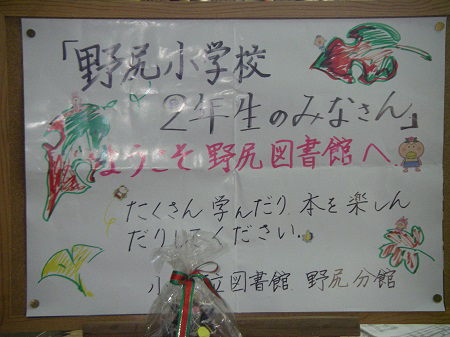 「野尻小学校
2年生のみなさん」
ようこそ野尻図書館へ
たくさん学んだり、本を楽しん
だりしてください。
小 立図書館 野尻分館